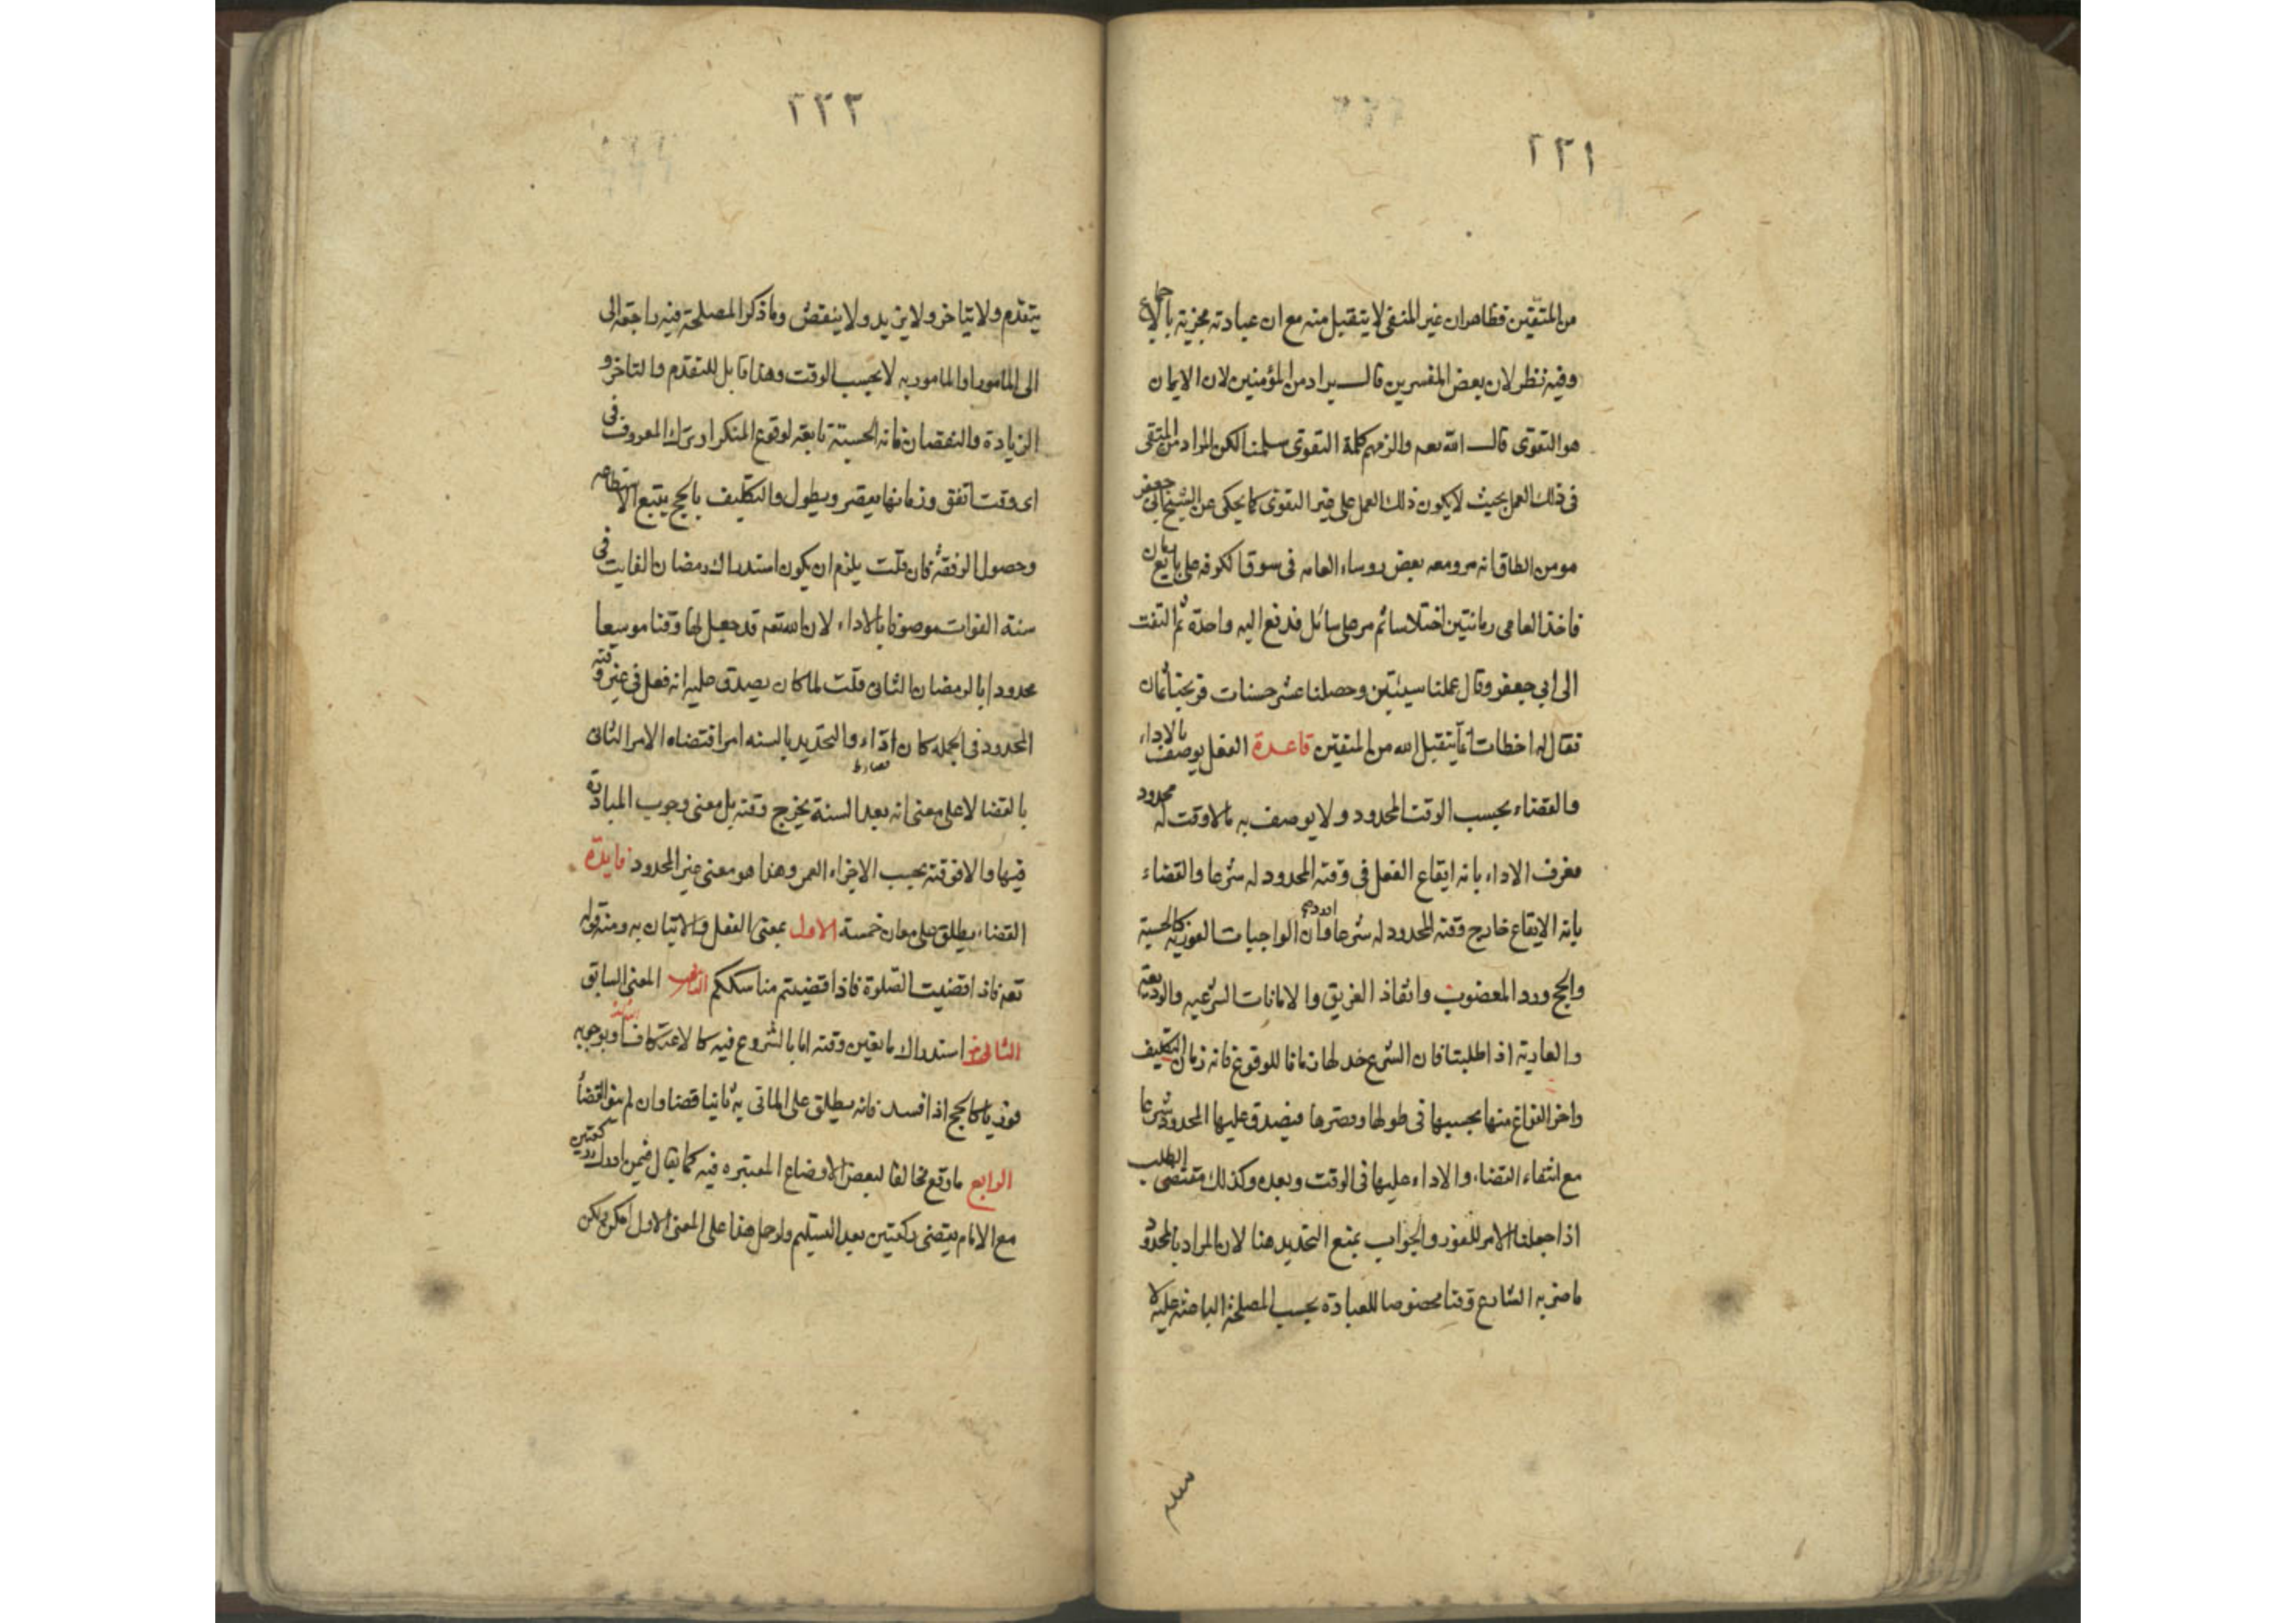 ٢٢١
من المتقين فظاهر ان غير المتقى لا يتقبل منه مع ان عبادته مجزية بالاجماع
وفيه نظر لان بعض المفسرين قال يراد من المؤمنين لان الايمان
هو التقوى قال الله تعم والزمهم كلمة التقوى سلمنا لكن المراد من المتقى
فى ذلك العمل بحيث لا يكون ذلك العمل على غير التقوى كما يحكى عن الشيخ ابى جعفر
مومن الطاق انه مر ومعه بعض روساء العامه فى سوق الكوفه على بايع رمان
فاخذ العامى رمانتين اختلاسا ثم مر على سائل فدفع اليه واحدة ثم التفت
الى ابي جعفر وقال عملنا سيئتين وحصلنا عشر حسنات فربحنا ثمان
فقال له اخطات انما يتقبل الله من المتقين قاعدة الفعل يوصف بالاداء
والقضاء بحسب الوقت المحدود ولا يوصف به ما لا وقت له محدود
فعرف الاداء بانه ايقاع الفعل فى وقته المحدود له شرعا والقضاء
بانه الايقاع خارج وقته المحدود له شرعا فان الواجبات الفورية كالحسبة
والحج ورد المغصوب وانقاذ الغريق والامانات الشرعيه والوديعة
والعارية اذا طلبتا فان الشرع حد لها زمانا للوقوع فانه زمان التكليف
واخر الفراغ منها بحسبها فى طولها وقصرها فيصدق عليها المحدود شرعا
مع انتفاء القضاء والاداء عليها فى الوقت وبعده وكذلك مقتضى الطلب
اذا جعلنا الامر للفور والجواب بمنع التحديد هنا لان المراد بالمحدود
ما ضربه الشارع وقتا مخصوصا للعبادة بحسب المصلحة الباعثة عليه لا
٢٢٢
يتقدم ولا يتاخر ولا يزيد ولا ينقص وما ذكر المصلحة فيه راجعة الى
الى المامور او المامور به لا بحسب الوقت وهذا قابل للتقدم والتاخر و
الزيادة والنقصان فانه الحسبة تابعة لوقوع المنكر او ترك المعروف فى
اى وقت اتفق وزمانها يقصر ويطول والتكليف بالحج يتبع الاستطاعه
وحصول الرفقة فان قلت يلزم ان يكون استدراك رمضان الفايت فى
سنة الفوات موصوفا بالاداء لان الله تعم قد جعل لها وقتا موسعا
محدودا بالرمضان الثانى قلت لما كان يصدق عليه انه فعل فى غير وقته
المحدود فى الجمله كان اداء والتحديد بالسنه امر اقتضاه الامر الثانى
بالقضا لا على معنى انه بعد السنة يخرج وقته بل معنى وجوب المبادرة
فيها والا فوقته بحسب الاجزاء العمر وهذا هو معنى غير المحدود فايدة
القضاء يطلق على معان خمسة الاول بمعنى الفعل والاتيان به ومنه قوله
تعم فاذا قضيت الصلوة فاذا قضيتم مناسككم الثانى المعنى السابق
استدراك ما تعين وقته اما بالشروع فيه كالاعتكاف او بوجوبه
فوريا كالحج اذا فسد فانه يطلق على الماتى به ثانيا قضا وان لم ينو القضا
الرابع ما وقع مخالفا لبعض الاوضاع المعتبره فيه كما يقال فيمن ادرك ركعتين
مع الامام يقضى ركعتين بعد التسليم ولو حمل هذا على المعنى الاول امكن ولكن